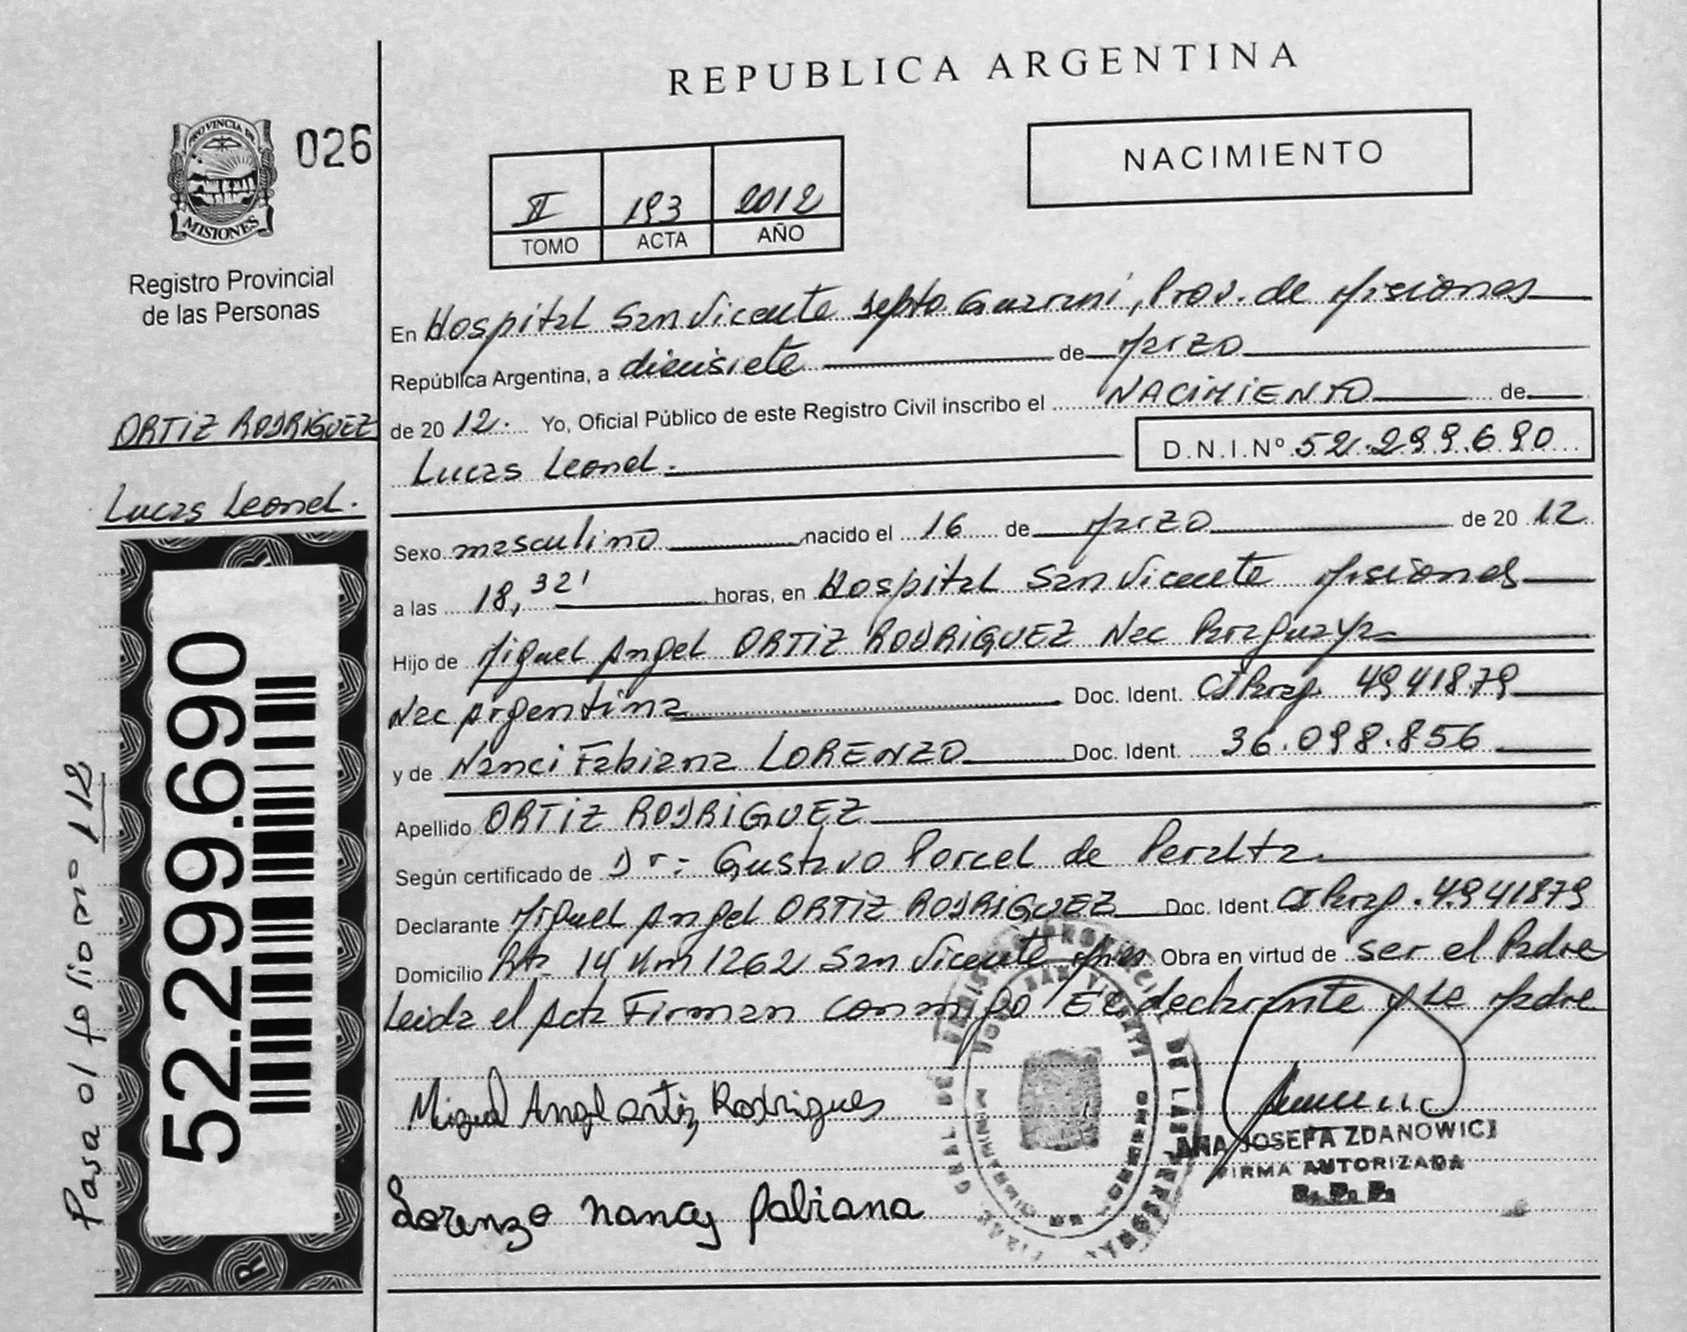 REPUBLICA ARGENTINA
PROVINCIA DE
MISIONES
026
Registro Provincial
de las Personas
NACIMIENTO
II 193 2012
TOMO ACTA AÑO
En Hospital San Vicente Depto. Guarani, Prov. de Misiones
República Argentina, a diecisiete de Marzo
de 2012. Yo, Oficial Público de este Registro Civil inscribo el NACIMIENTO de
Lucas Leonel. D.N.I.Nº 52.299.690
ORTIZ RODRIGUEZ
Lucas Leonel.
Sexo masculino nacido el 16 de Marzo de 2012
a las 18,32' horas, en Hospital San Vicente Misiones
Hijo de Miguel Angel ORTIZ RODRIGUEZ Nac Paraguaya
Doc. Ident. CI Parag. 4941879
Nac Argentina
y de Nanci Fabiana LORENZO Doc. Ident. 36.098.856
Apellido ORTIZ RODRIGUEZ
Según certificado de Dr: Gustavo Porcel de Peralta
Declarante Miguel Angel ORTIZ RODRIGUEZ Doc. Ident CI Parag. 4941879
Domicilio Rta 14 Km 1262 San Vicente Mnes Obra en virtud de ser el Padre
Leida el Acta Firman conmigo El declarante y La Madre
Miguel Angel ortiz Rodrigues
Lorenzo nancy fabiana
ANA JOSEFA ZDANOWICZ
FIRMA AUTORIZADA
R.P.P.
52.299.690
Pasa al folio nº 112